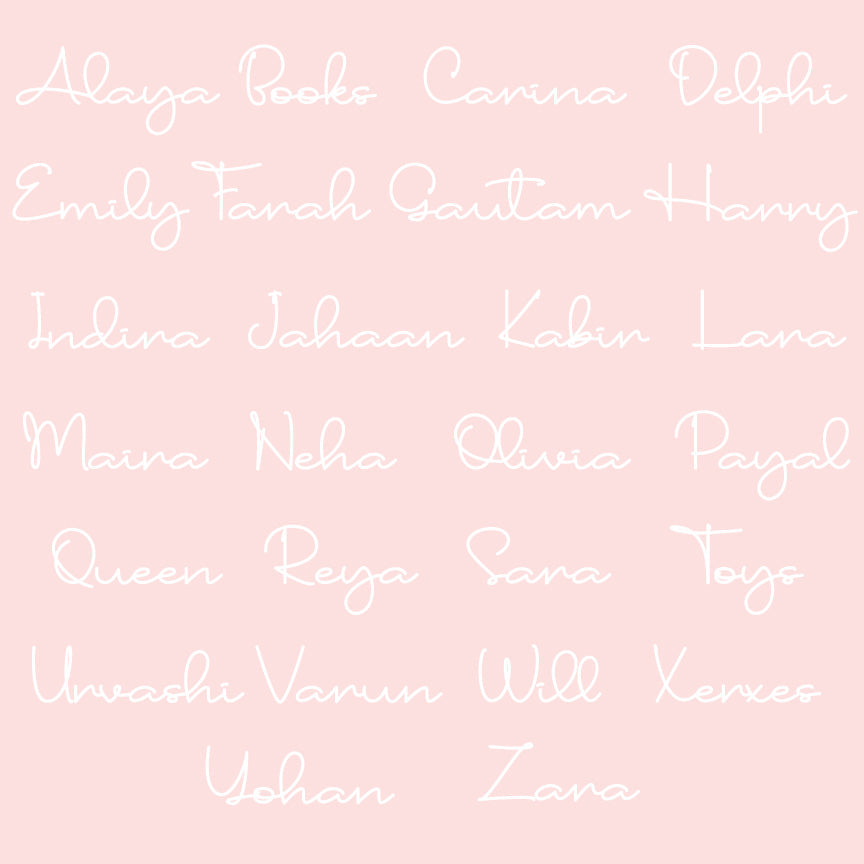 Alaya Books Carina Delphi
Emily Farah Gautam Harry
Indira Jahaan Kabir Lara
Maira Neha Olivia Payal
Queen Reya Sara Toys
Urvashi Varun Will Xerxes
Yohan Zara